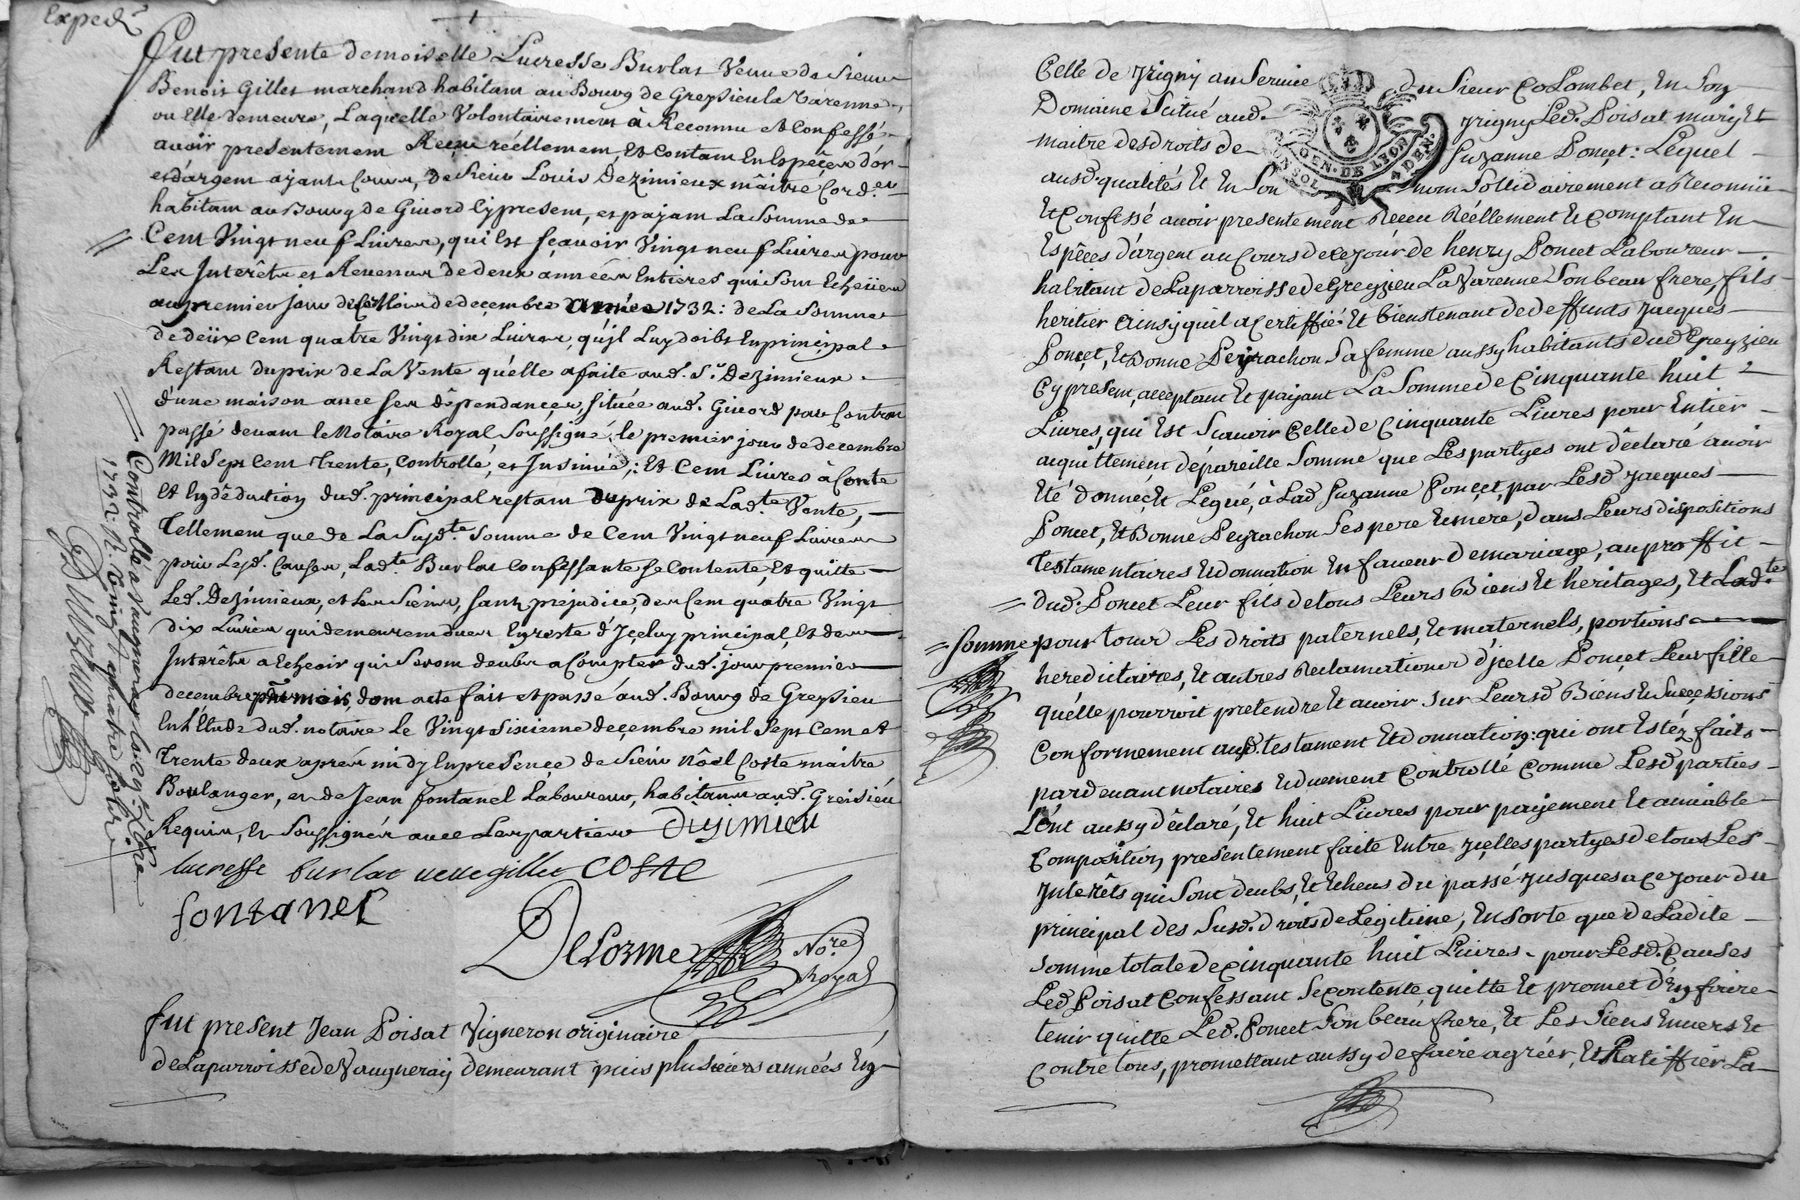 Exped.
Fut presente demoiselle Lucresse Burlat Veuve de Sieur
Benoit Gillet marchand habitant au Bourg de Greysieu la Varenne,
ou Elle demeure, Laquelle Volontairement à Reconnu et Confessé
avoir presentement Reçeu réellement, Et Contant En Espèces d'or
et d'argent ajant Cours, de Sieur Louis Dezimieux mâitre Cord.er
habitant au Bourg de Givord Cy present, et pajant La Somme de
Cent Vingt neuf Livres, qui Est sçavoir Vingt neuf Livres pour
Les Interêts et Revenus de deux années Entieres qui Sont Echeües
au premier jour de ce Mois de decembre année 1732: de La Somme
de deüx Cent quatre Vingt dix Livres, qu'jl Luy doibt En principal
Restant du prix de La Vente qu'elle a faite aud. S.r Dezimieux
d'une maison avec Ses dêpendances, située aud. Givord par Contrat
passé devant le Notaire Royal Soussigné, le premier jour de decembre
Mil Sept Cent trente, Controllé, et Insinué; Et Cent Livres à Conte
Et En dêduction dud. principal restant du prix de Lad.te Vente,
Tellement que de La Susd.te Somme de Cent Vingt neuf Livres
pour Lesd. Causes, Lad.te Burlat Confessante se Contente, Et quitte
Led. Dezimieux, et Les Siens, sans prejudice des Cent quatre Vingt
dix Livres qui demeurent dues En reste d'Jceluy principal, Et des
Interêts a Echeoir qui Seront deubs a Compter dud. jour premier
decembre pnt mois, dont acte fait et passé aud. Bourg de Greysieu
En L'Etude dud. notaire le Vingt Sixieme deçembre mil Sept Cent et
trente deux aprés midy En presence de Sieur Nôel Coste maitre
Boulanger, et de Jean fontanel Laboureur, habitants aud. Greisieu
Requis, Et Soussignés avec Les parties Disimieu
lucresse burlat veuve gillet COSTE
fontanel
Delorme No.re
Royal
fut present Jean Poisat Vigneron originaire
de La parroisse de Vaugneray demeurant puis plusieurs années En
Controllé a
1732. R.
Celle de Yrigny au Service du Sieur CoLombet, En Son
Domaine Scitué aud. Yrigny Led. Poisat mary Et
maitre des droits de Suzanne Ponçet: Lequel
ausd. qualités Et En Son nom Sollidairement a Reconnü
Et Confessé avoir presentement Receu Réellement Et Comptant En
Espêces d'argent au Cours de Ce jour de henry Poncet Laboureur
habitant de La parroisse de Greyzieu La Varenne Son beau frere, fils
heritier Ainsy quil a Certiffié Et bienstenant de deffunts Jacques
Ponçet, Et Bonne Peyrachon Sa femme aussy habitants dud Greyzieu
Cy present, acceptant Et pajant La Somme de Cinquante huit
Livres, qui Est Scavoir Celle de Cinquante Livres pour Entier
aquittement de pareille Somme que Les partyes ont dêclaré avoir
Eté donnée, Et Leguée, à Lad. Suzanne Ponçet, par Lesd. Jacques
Poncet, Et Bonne Peyrachon Ses pere Et mere, dans Leurs dispositions
Testamentaires Et donnation En faveur de mariage, au proffit
dud. Poncet Leur fils de tous Leurs Biens Et heritages, Et Lad.te
= Somme pour tous Les droits paternels, Et maternels, portions
hereditaires, Et autres Reclamations d'jcelle Ponçet Leur fille
qu'elle pourroit pretendre Et avoir sur Leursd. Biens En Successions
Conformement ausd. testament Et donnation: qui ont Estéz faits
pardevant notaires Et duement Controllé Comme Lesd parties
L'ont aussy dêclaré, Et huit Livres pour payement Et amiable
Composition presentement faite Entre jcelles partyes de tous Les
Interêts qui Sont deubs, Et Echeus du passé Jusques a Ce jour du
principal des Susd. droits de Legitime, En sorte que de Ladite
Somme totale de Cinquante huit Livres pour Lesd. Causes
Led Poisat Confessant Se Contente, quitte Et promet d'En faire
tenir quitte Led. Poncet Son beau frere, Et Les Siens Envers Et
Contre tous, promettant aussy de faire agréer, Et Ratiffier La
GEN. DE LYON